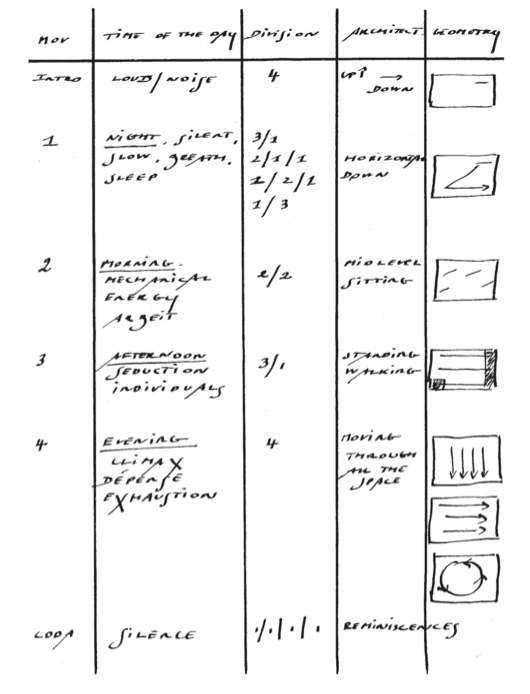 MOV TIME OF THE DAY DIVISION ARCHITECT. GEOMETRY
INTRO LOUD/NOISE 4 UP↑ → DOWN
1 NIGHT. SILENT, 3/1
SLOW. BREATH. 2/1/1 HORIZONTAL
SLEEP 1/2/1 DOWN
1/3
2 MORNING. MIDLEVEL
MECHANICAL 2/2 SITTING
ENERGY
ARBEIT
3 AFTERNOON 3/1 STANDING
SEDUCTION WALKING
INDIVIDUALS
4 EVENING 4 MOVING
CLIMAX THROUGH
DÉPENSE ALL THE
EXHAUSTION SPACE
CODA SILENCE 1/1/1/1 REMINISCENCES